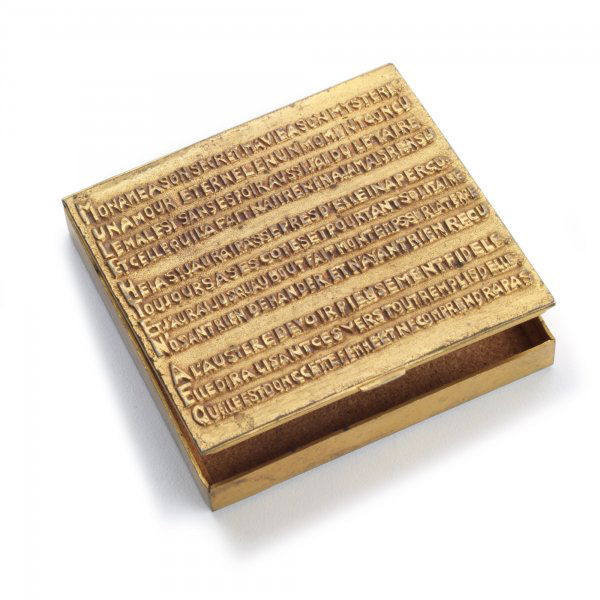 MON AME A SON SECRET MA VIE A SON MYSTERE
UN AMOUR ETERNEL EN UN MOMENT CONCU
LE MAL EST SANS ESPOIR AUSSI JAI DU LE TAIRE
ET CELLE QUI LA FAIT
HELAS JAURAI PASSE PRES DELLE INAPERCU
TOUJOURS A SES COTES ET POURTANT SOLITAIRE
ET JAURAI JUSQUAU BOUT FAIT MON TEMPS SUR LA TERRE
NOSANT RIEN DEMANDER ET NAYANT RIEN RECU
A LAUSTERE DEVOIR PIEUSEMENT FIDELE
ELLE DIRA LISANT CES VERS TOUT REMPLIS DELLE
QUELLE EST DONC CETTE FEMME ET NE COMPRENDRA PAS